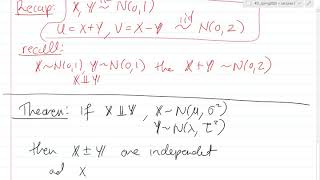 Recap: X, Y iid N(0,1)
U = X+Y, V = X-Y iid ~ N(0,2)
recall:
X~N(0,1), Y~N(0,1) the X+Y ~N(0,2)
X⫫Y
Theorem: If X⫫Y, X~N(μ,σ²)
Y~N(λ,τ²)
then X±Y are independent
ad X